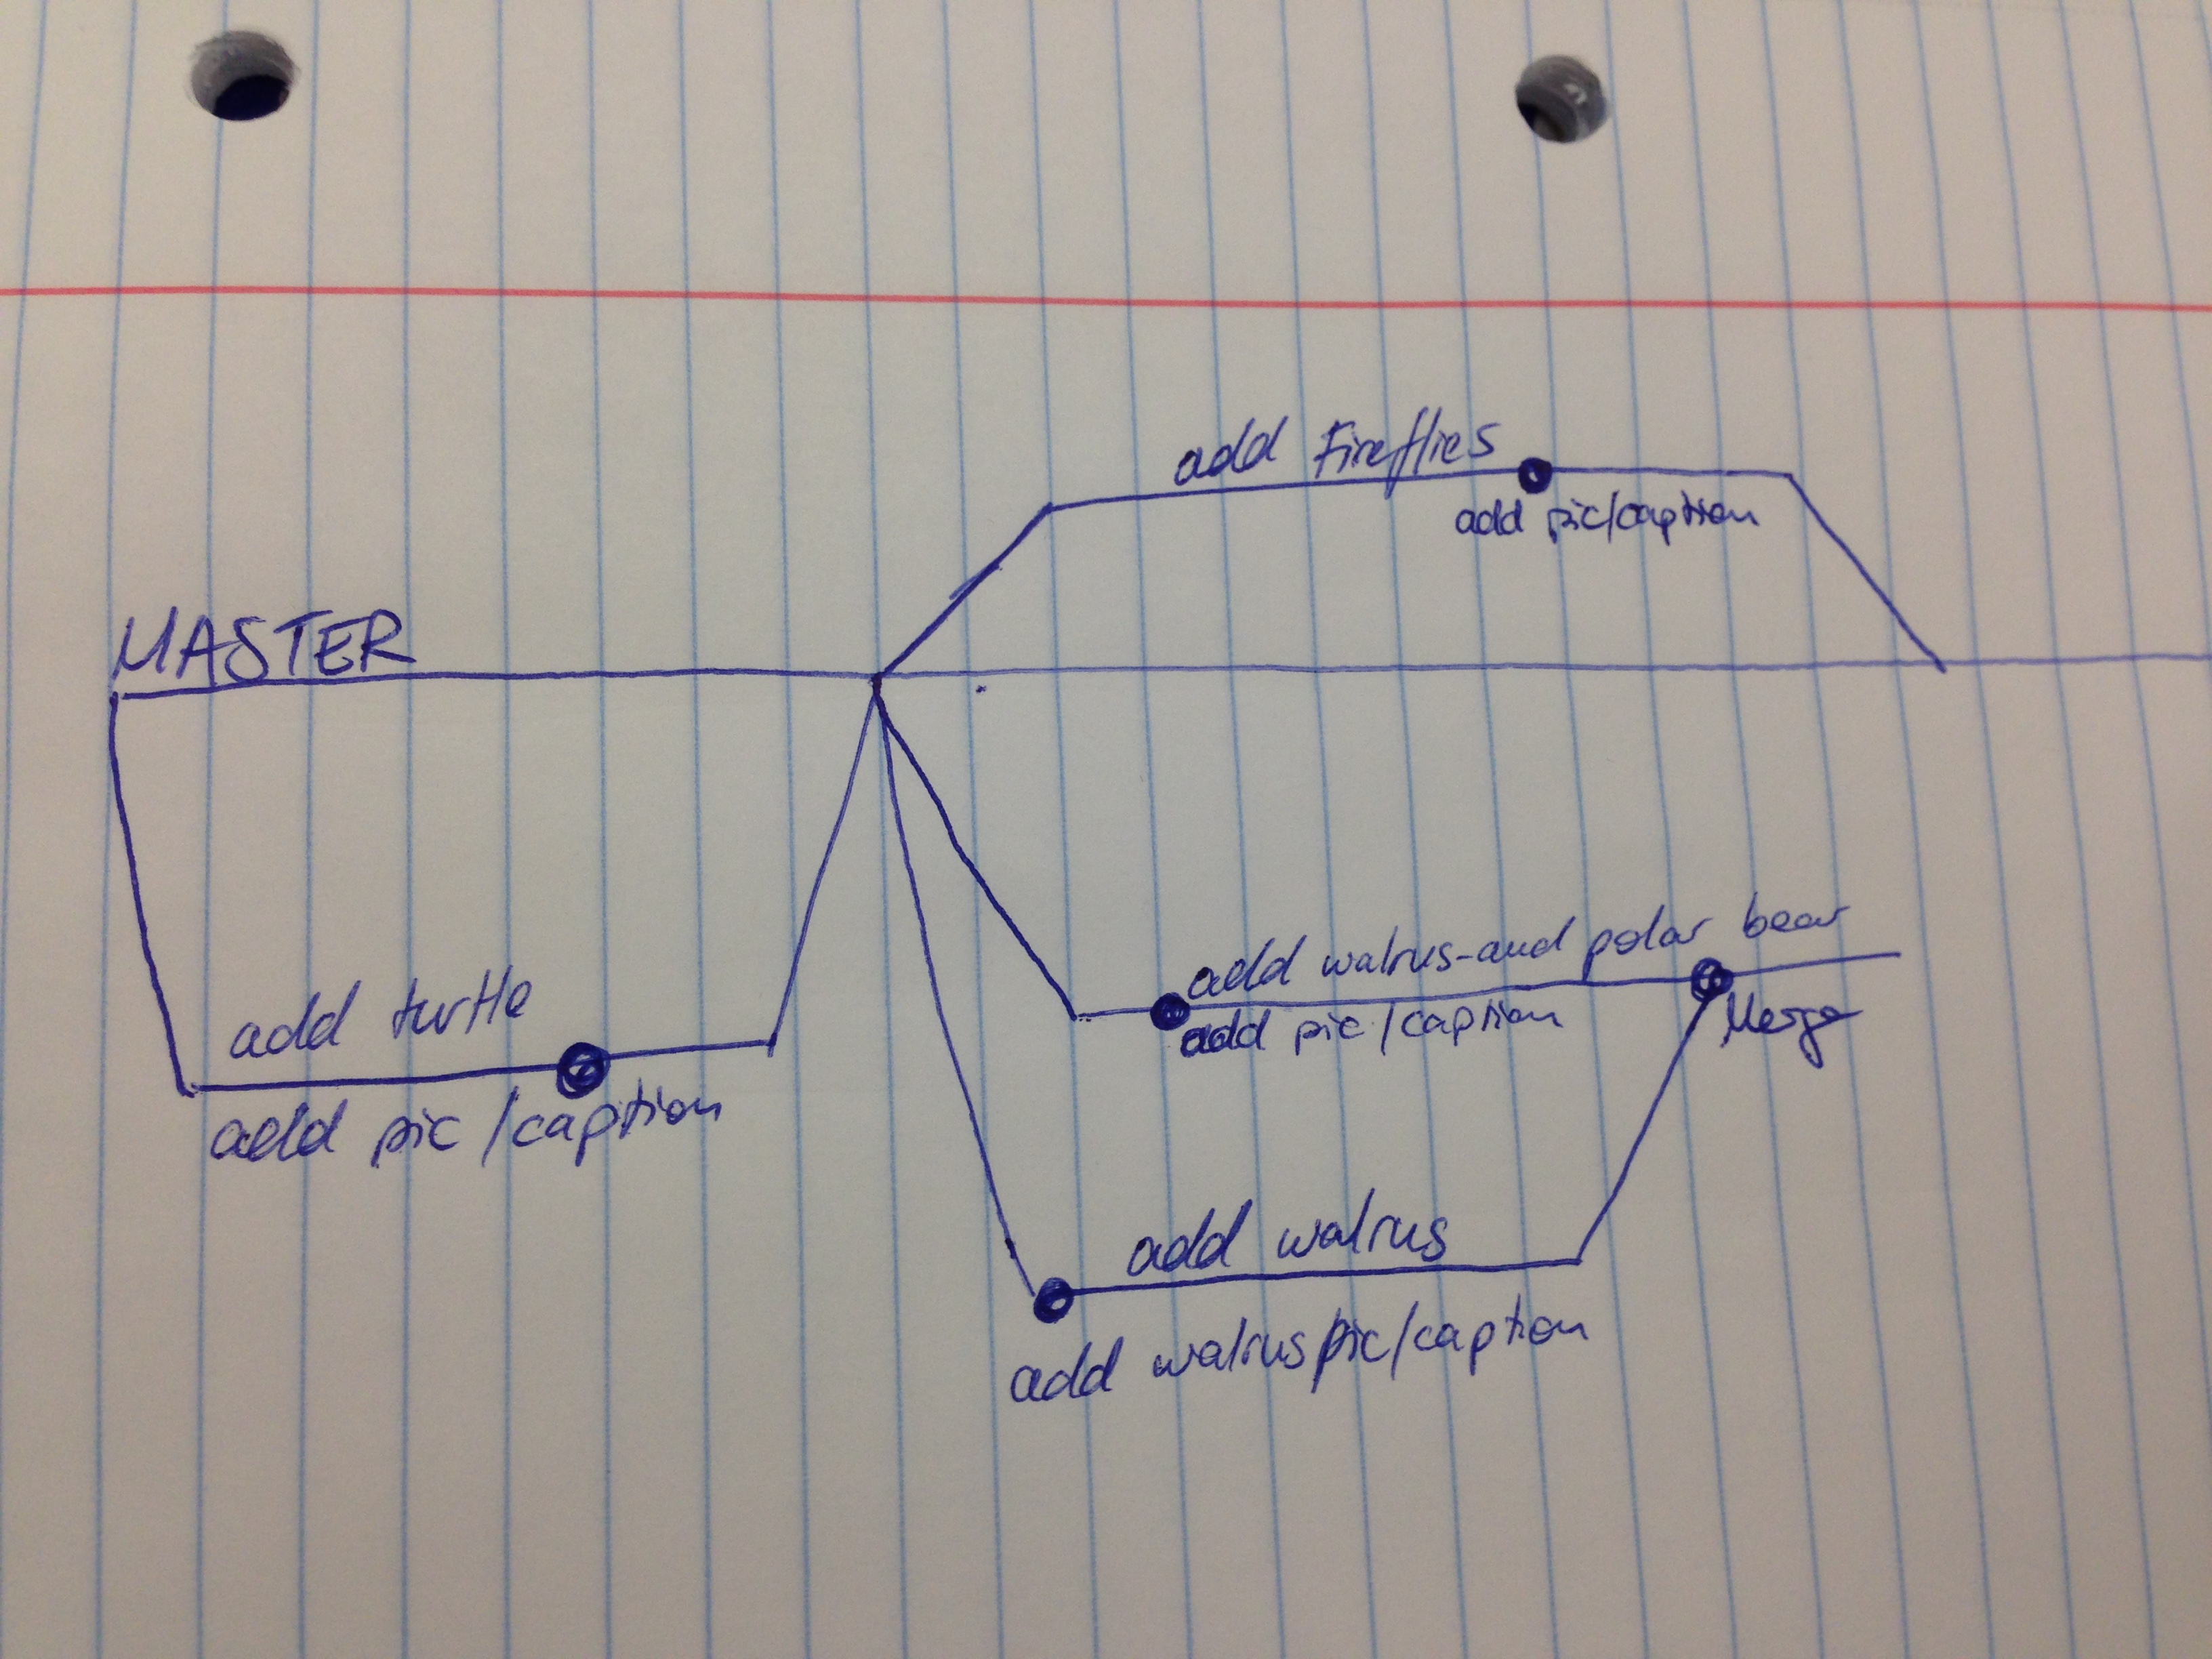 MASTER
add fireflies
add pic/caption
add turtle
add pic/caption
add walrus-and polar bear
add pic/caption
Merge
add walrus
add walrus pic/caption